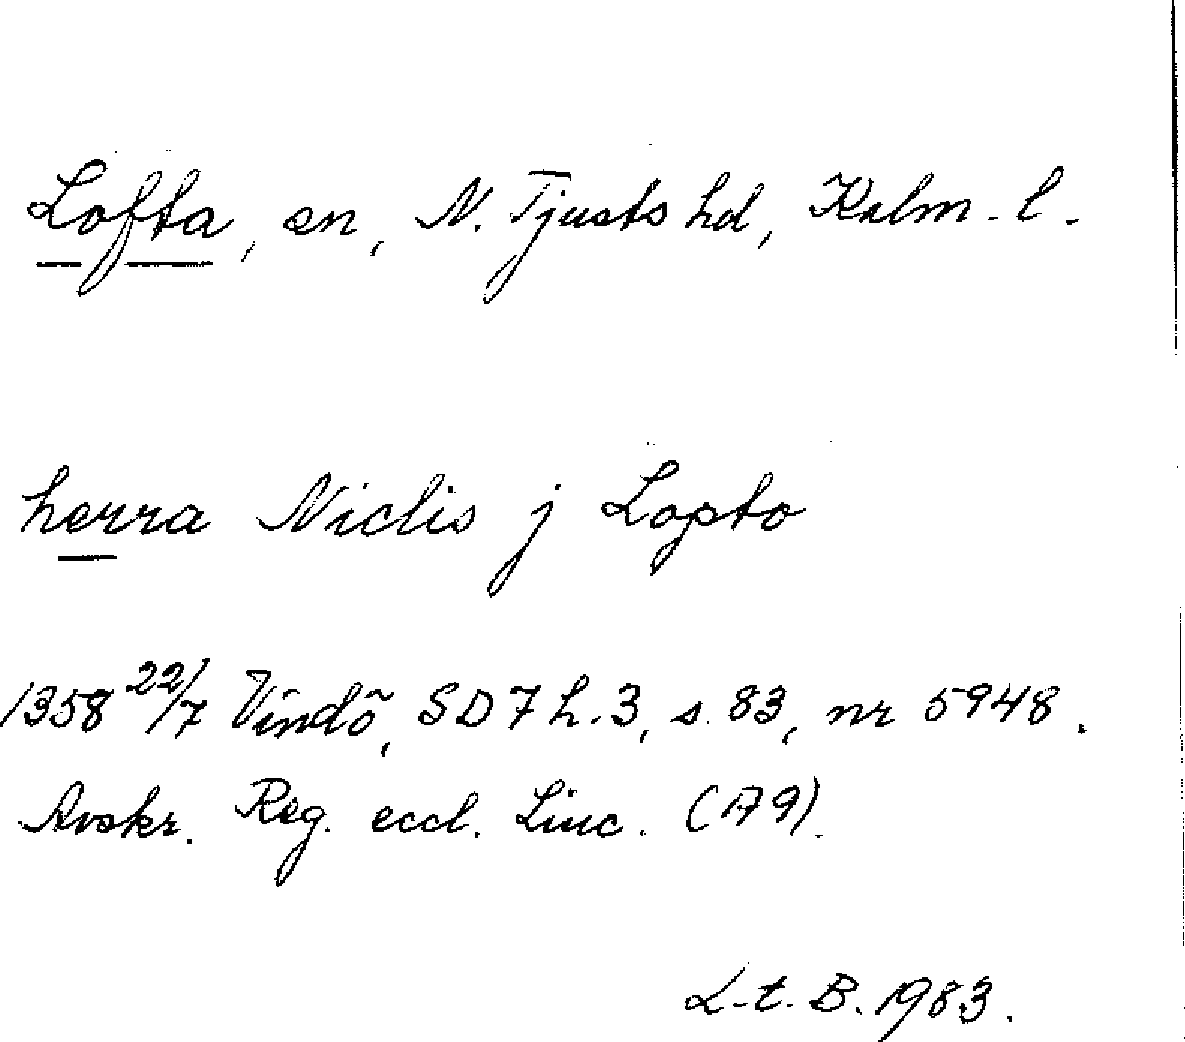 Lofta, sn, N. Tjusts hd, Kalm. l.
herra Niclis j Lopto
1358 22/7 Vindö, SD 7 h. 3, s. 83, nr 5948.
Avskr. Reg. eccl. Linc. (A9).
L-t. B. 1983.